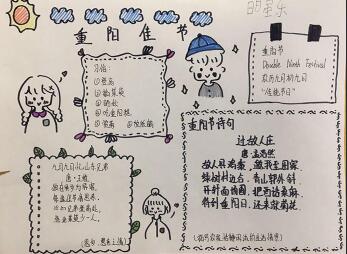 重阳佳节
习俗:
①登高
②插茱萸
③晒秋
④吃重阳糕
⑤赏菊
⑥放纸鸢
重阳节
Double Ninth Festival
农历九月初九日
"传统节日"
九月九日忆山东兄弟
唐·王维
独在异乡为异客,
每逢佳节倍思亲。
遥知兄弟登高处,
遍插茱萸少一人。
重阳节诗句
过故人庄
唐 孟浩然
故人具鸡黍,邀我至田家。
绿树村边合,青山郭外斜。
开轩面场圃,把酒话桑麻。
待到重阳日,还来就菊花。